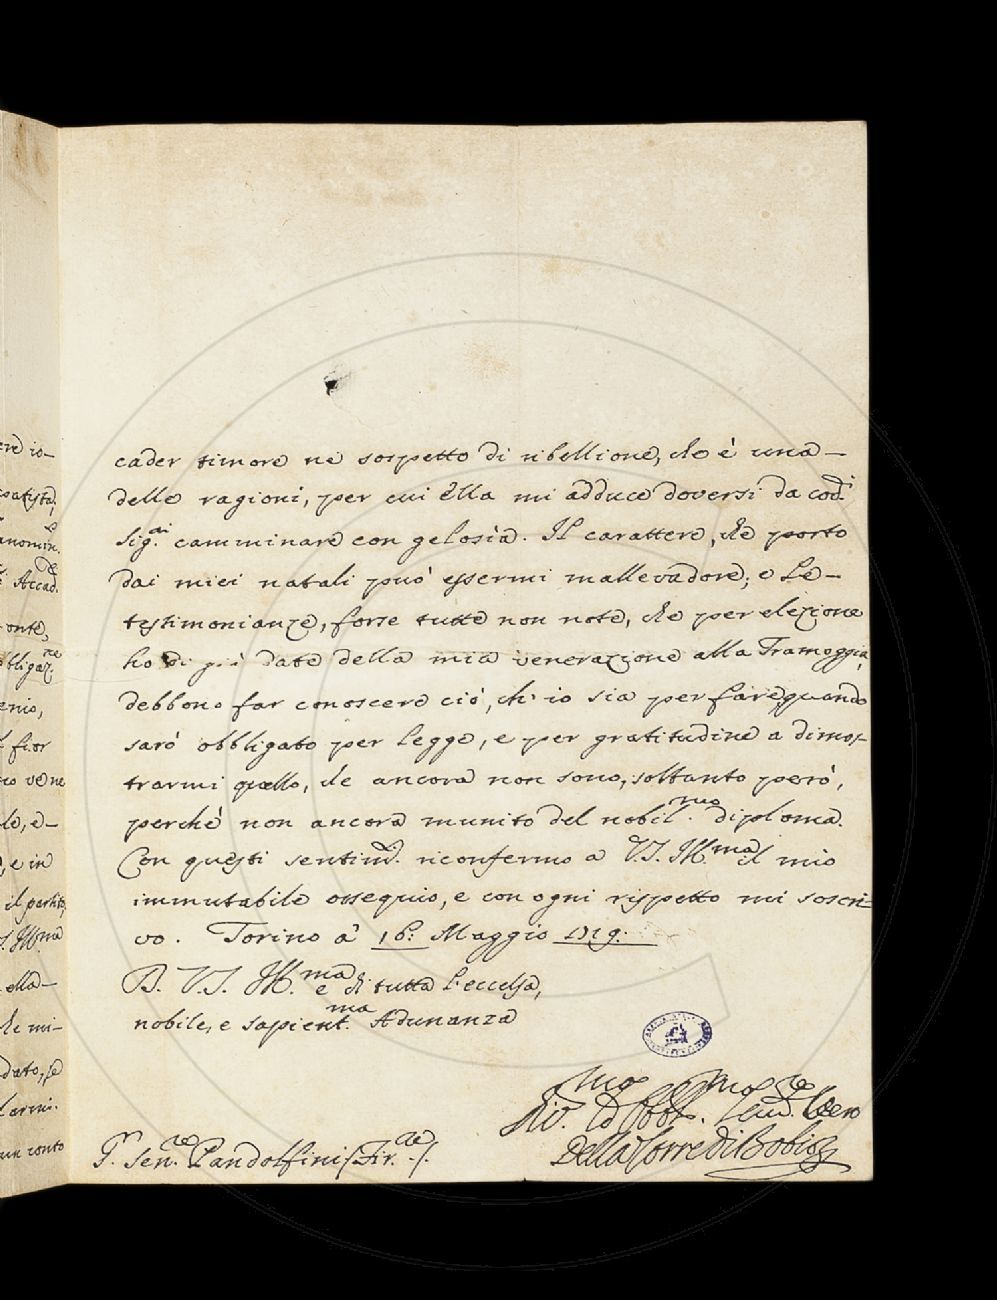 cader timore nè sospetto di ribellione, che è una
delle ragioni, per cui Ella mi adduce doversi da cod.i
Sig.ri camminare con gelosìa. Il carattere, che porto
dai miei natali può essermi mallevadore; e le
testimonianze, forse tutte non note, che per elezione
ho di già date della mia venerazione alla Tramoggia,
debbono far conoscere ciò, ch' io sia per fare, quando
sarò obbligato per legge, e per gratitudine a dimos-
trarmi quello, che ancora non sono, soltanto però,
perchè non ancora munito del nobil.mo diploma.
Con questi sentim. riconfermo a V.S. Ill.ma il mio
immutabile ossequio, e con ogni rispetto mi soscri-
vo. Torino à 16. Maggio
D. V.S. Ill.ma e di tutta l'eccelsa,
nobile, e sapient.ma Adunanza
Div.mo ed Obbl.mo Ser.re Vero
Della Torre di Bobio
Sen.re Pandolfini (Fir.ze).
ere io
Accad.
onte,
obligaz.ne
enio,
fior
vene
, e in
il partito
Ill.ma
ella
che mi
dato, se
un conto